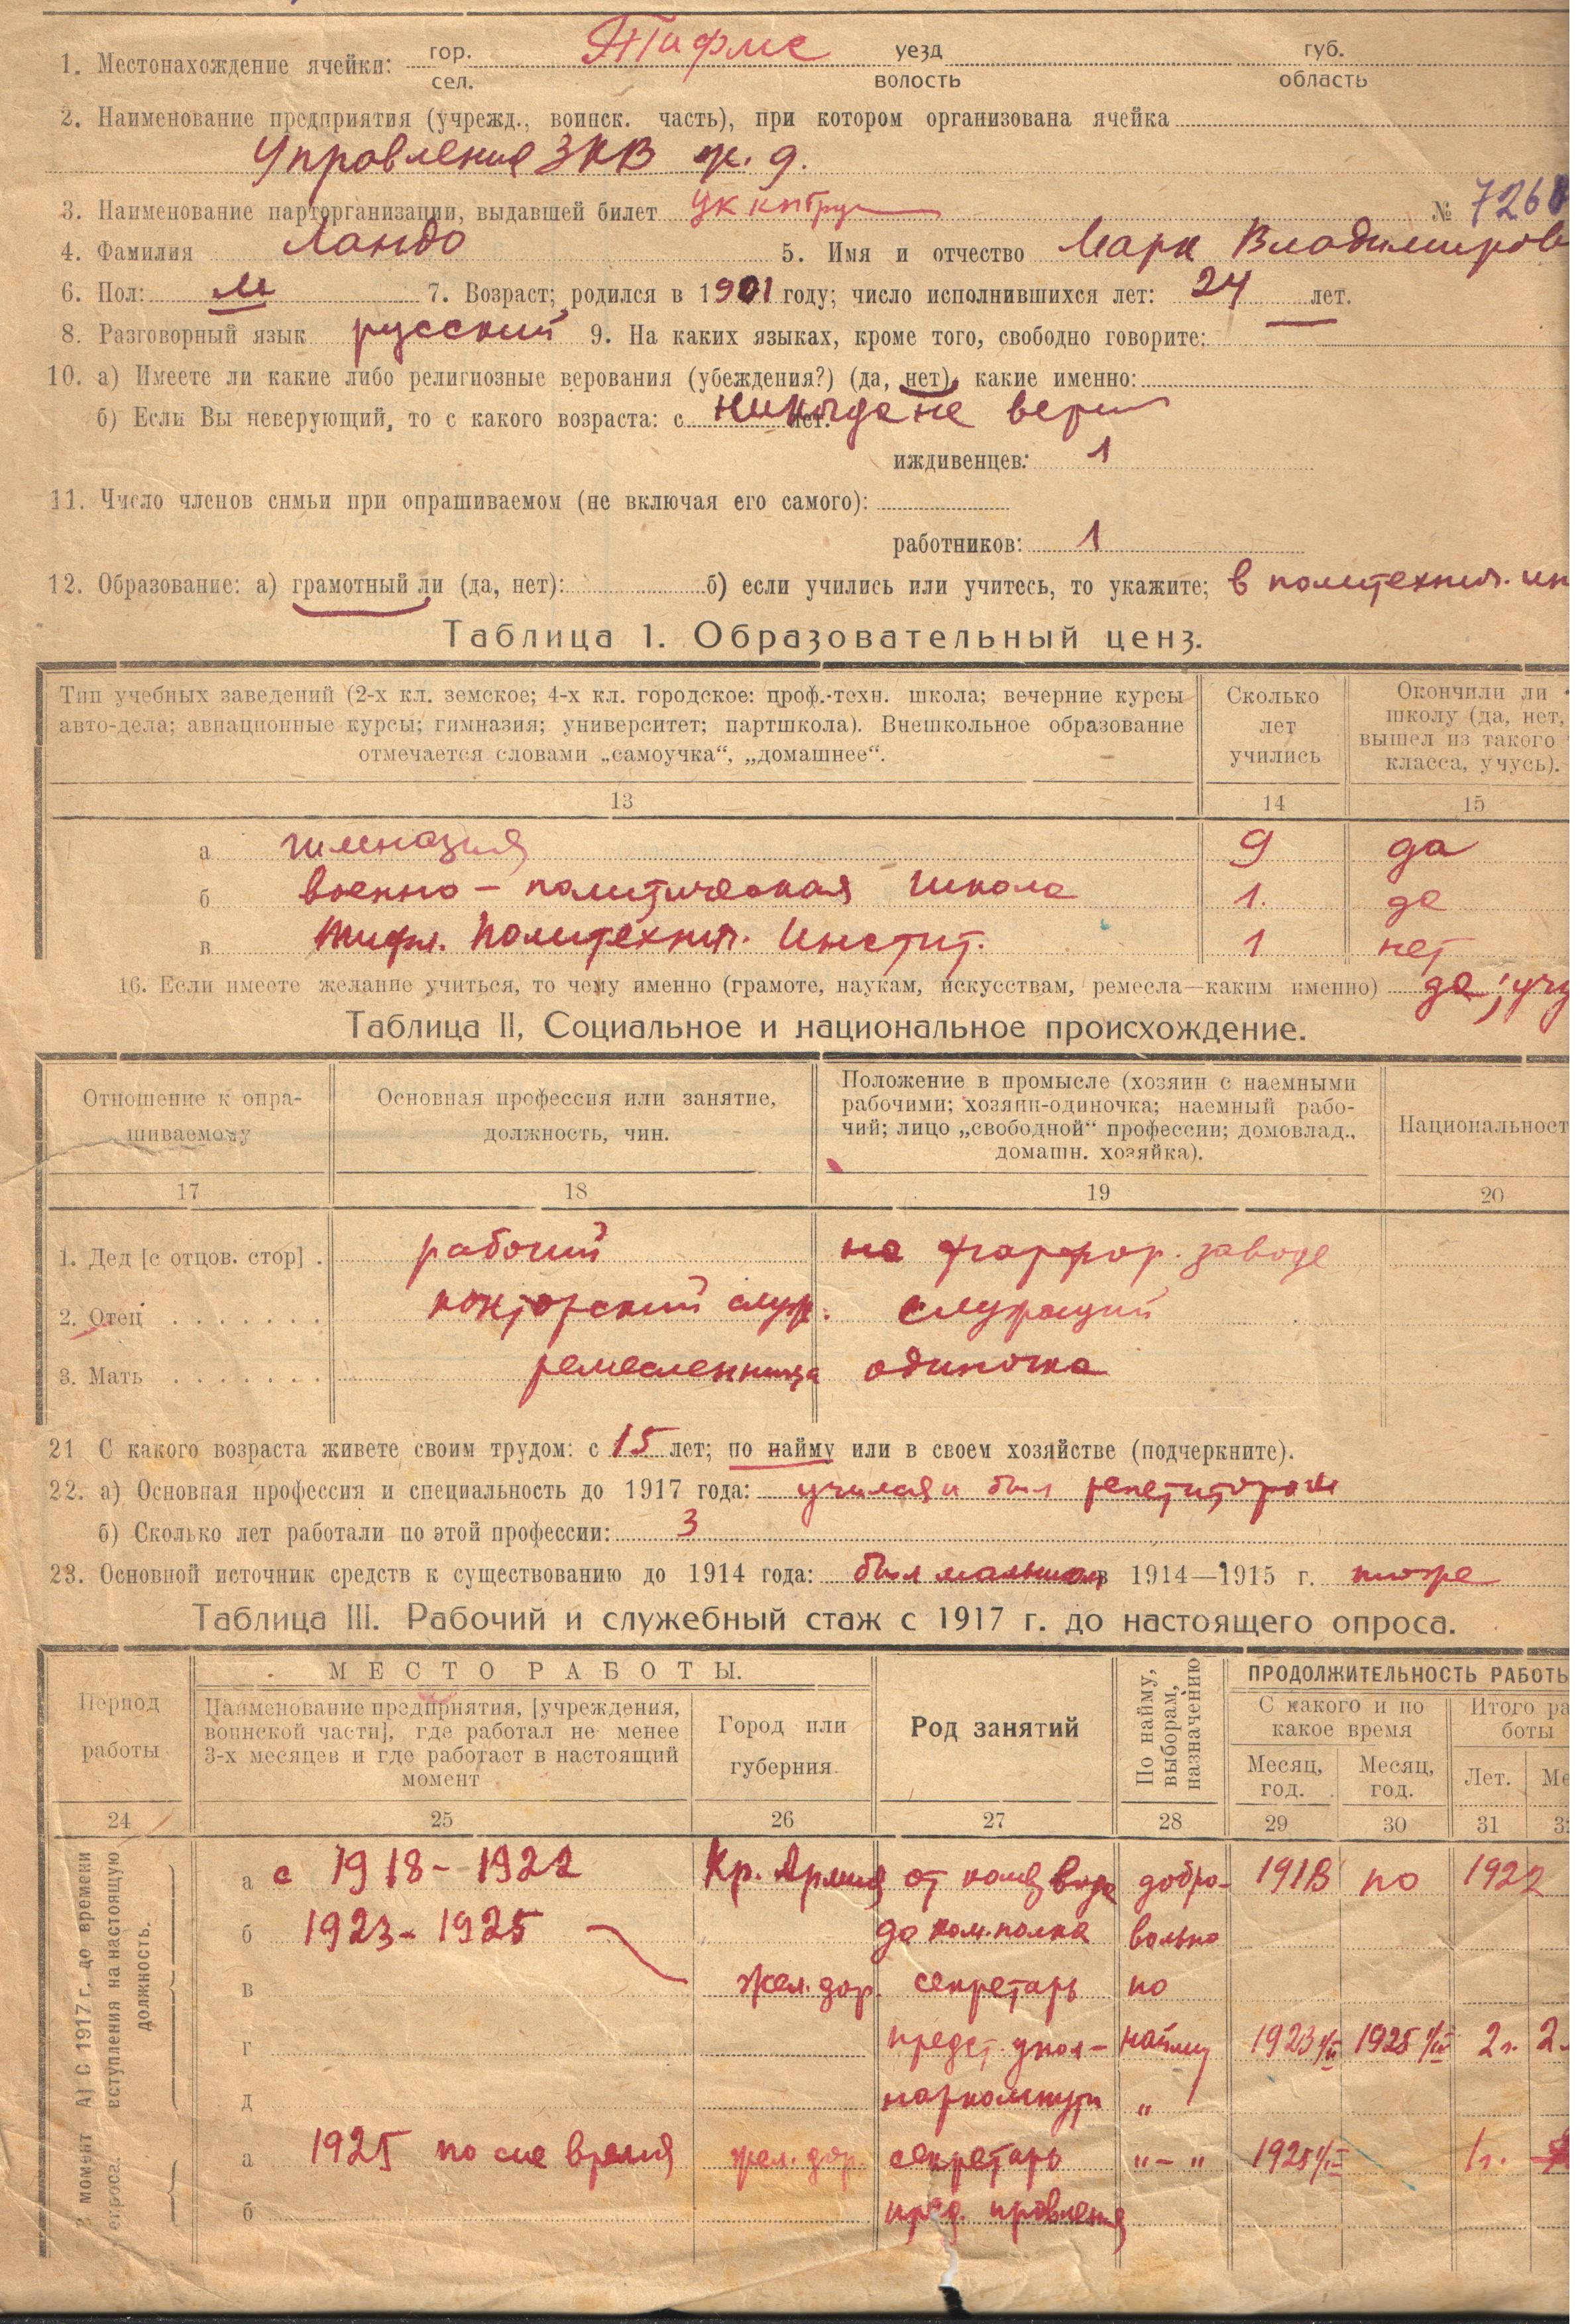 1. Местонахождение ячейки: гор. Тифлис уезд губ.
сел. волость область
2. Наименование предприятия (учрежд., воинск. часть), при котором организована ячейка
Управление ЗКВ ж. д.
3. Наименование парторганизации, выдавшей билет ЦК КП Груз № 7268
4. Фамилия Ландо 5. Имя и отчество Марк Владимиров
6. Пол: м 7. Возраст; родился в 1901 году; число исполнившихся лет: 24 лет.
8. Разговорный язык русский 9. На каких языках, кроме того, свободно говорите: —
10. а) Имеете ли какие либо религиозные верования (убеждения?) (да, нет), какие именно:
б) Если Вы неверующий, то с какого возраста: с никогда не верил лет.
иждивенцев: 1
11. Число членов снмьи при опрашиваемом (не включая его самого):
работников: 1
12. Образование: а) грамотный ли (да, нет): б) если учились или учитесь, то укажите; в политехнич. ин
Таблица 1. Образовательный ценз.
Тип учебных заведений (2-х кл. земское; 4-х кл. городское: проф.-техн. школа; вечерние курсы
авто-дела; авиационные курсы; гимназия; университет; партшкола). Внешкольное образование
отмечается словами „самоучка“, „домашнее“.
Сколько
лет
учились
Окончили ли
школу (да, нет,
вышел из такого
класса, учусь).
13 14 15
а гимназия 9 да
б военно – политическая школа 1. да
в Тифл. Политехнич. Инстит. 1 нет
16. Если имеете желание учиться, то чему именно (грамоте, наукам, искусствам, ремесла—каким именно) да; учу
Таблица II, Социальное и национальное происхождение.
Отношение к опра-
шиваемому
Основная профессия или занятие,
должность, чин.
Положение в промысле (хозяин с наемными
рабочими; хозяин-одиночка; наемный рабо-
чий; лицо „свободной“ профессии; домовлад.,
домашн. хозяйка).
Национальност
17 18 19 20
1. Дед [с отцов. стор] . рабочий на фарфор. заводе
2. Отец . . . . . . . конторский служ. служащий
3. Мать . . . . . . . ремесленница одиночка
21 С какого возраста живете своим трудом: с 15 лет; по найму или в своем хозяйстве (подчеркните).
22. а) Основная профессия и специальность до 1917 года: учился и был репетитором
б) Сколько лет работали по этой профессии: 3
23. Основной источник средств к существованию до 1914 года: был мальчиком в 1914—1915 г. тоже
Таблица III. Рабочий и служебный стаж с 1917 г. до настоящего опроса.
Период
работы
МЕСТО РАБОТЫ.
Наименование предприятия, [учреждения,
воинской части], где работал не менее
3-х месяцев и где работает в настоящий
момент
Город или
губерния.
Род занятий
По найму,
выборам,
назначению
ПРОДОЛЖИТЕЛЬНОСТЬ РАБОТЬ
С какого и по
какое время
Итого ра
боты
Месяц,
год.
Месяц,
год.
Лет.
Ме
24 25 26 27 28 29 30 31 3
А) С 1917 г. до времени
вступления на настоящую
должность.
а с 1918 – 1922 Кр. Армия от комвзвода добро- 1918 по 1922
б 1923 – 1925 до ком. полка вольно
в жел. дор. секретарь по
г предст. упол- найму 1923 1925 2 г. 2
д наркомпути "
момент
опроса.
а 1925 по сие время жел. дор. секретарь " – " 1925 1 г.
б пред. правления